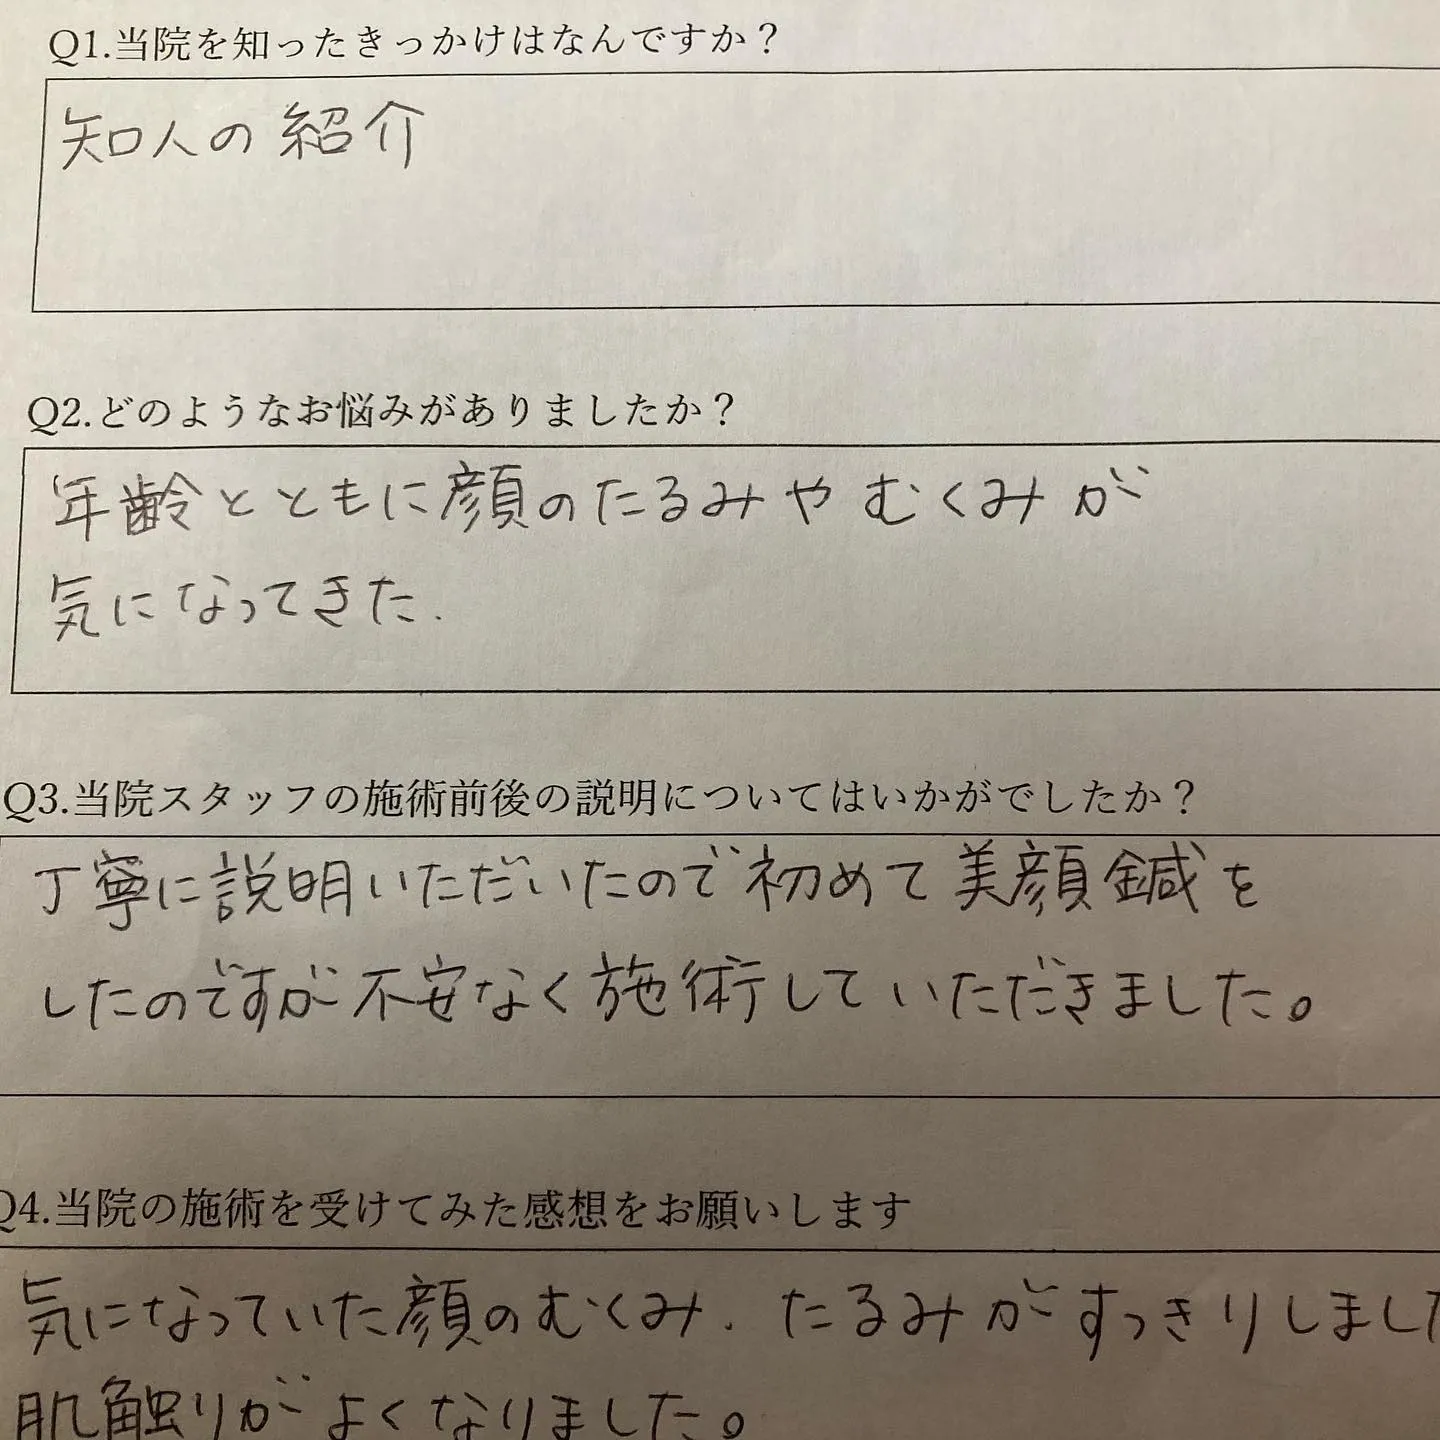 Q1.当院を知ったきっかけはなんですか？
知人の紹介
Q2.どのようなお悩みがありましたか？
年齢とともに顔のたるみやむくみが
気になってきた.
Q3.当院スタッフの施術前後の説明についてはいかがでしたか？
丁寧に説明いただいたので初めて美顔鍼を
したのですが不安なく施術していただきました。
Q4.当院の施術を受けてみた感想をお願いします
気になっていた顔のむくみ.たるみがすっきりしました
肌触りがよくなりました。